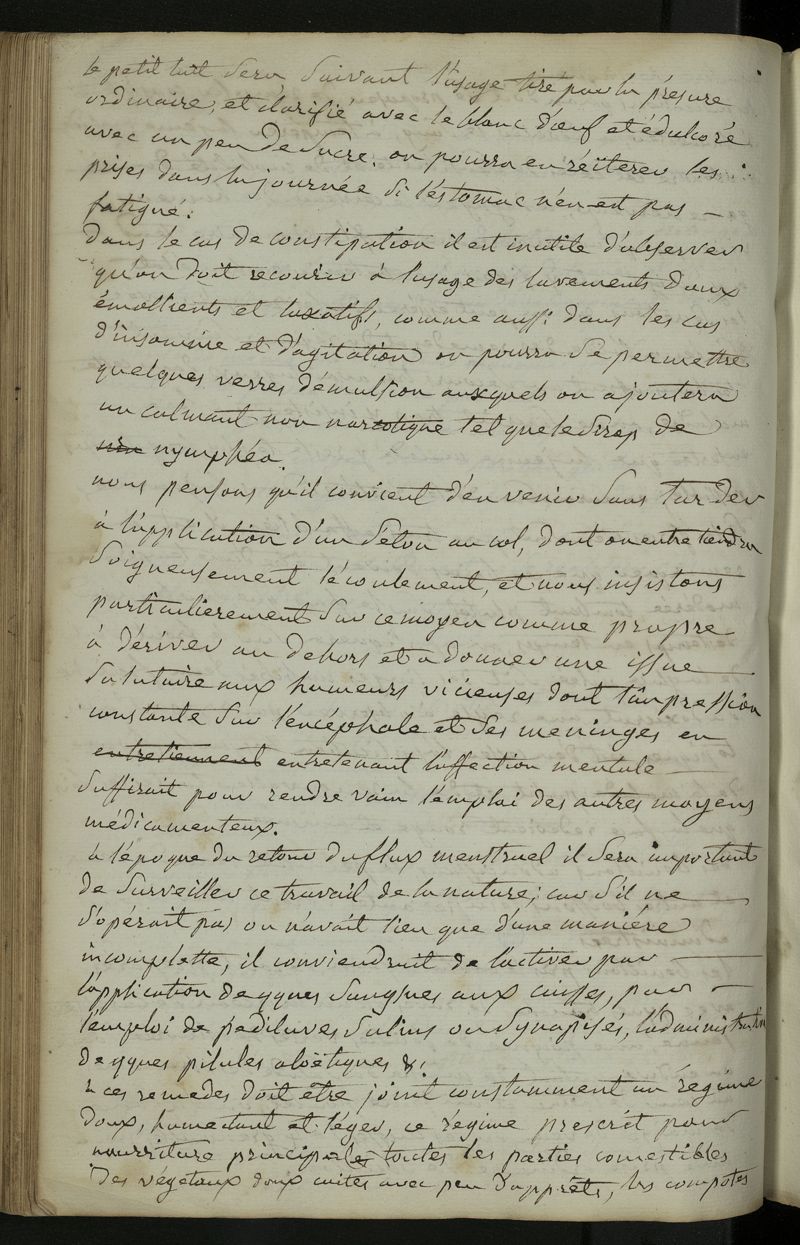 le petit lait sera suivant l'usage tiré par la présure
ordinaire, et clarifié avec le blanc d'œuf et édulcoré
avec un peu de sucre. on pourra en réïterer les
prises dans la journée si l'estomac n'en est pas —
fatigué.
Dans le cas de constipation il est inutile d'observer
qu'on doit recourir à l'usage des lavements doux
émollients et laxatifs, comme aussi dans les cas
d'insomnie et d'agitation on pourra se permettre
quelques verres d'émulsion auxquels on ajoutera
un calmant non narcotique tel que le sirop de
nymphéa.
nous pensons qu'il convient d'en venir sans tarder
à l'application d'un seton au col, dont on entretiendra
soigneusement l'écoulement, et nous insistons
particulierement sur ce moyen comme propre
à dériver au dehors et a donner une issue
salutaire aux humeurs vicieuses dont l'impression
constante sur l'encéphale et ses meninges en
entretiennent entretenant l'affection mentale —
suffirait pour rendre vain l'emploi des autres moyens
médicamenteux.
à l'époque du retour du flux menstruel il sera important
de surveiller ce travail de la nature; car s'il ne —
s'opérait pas ou n'avait lieu que d'une maniére
incomplette, il conviendrait de l'activer par —
l'application de qques sangsues aux cuisses, par —
l'emploi de pédiluves salins ou synapisés, l'administration
de qques pilules aloëtiques &.
à ces remedes doit être joint constamment un régime
doux, humectant et léger, ce régime prescrit pour
nourriture principales toutes les parties comestibles
des végetaux doux cuites avec peu d'apprêts, les compotes